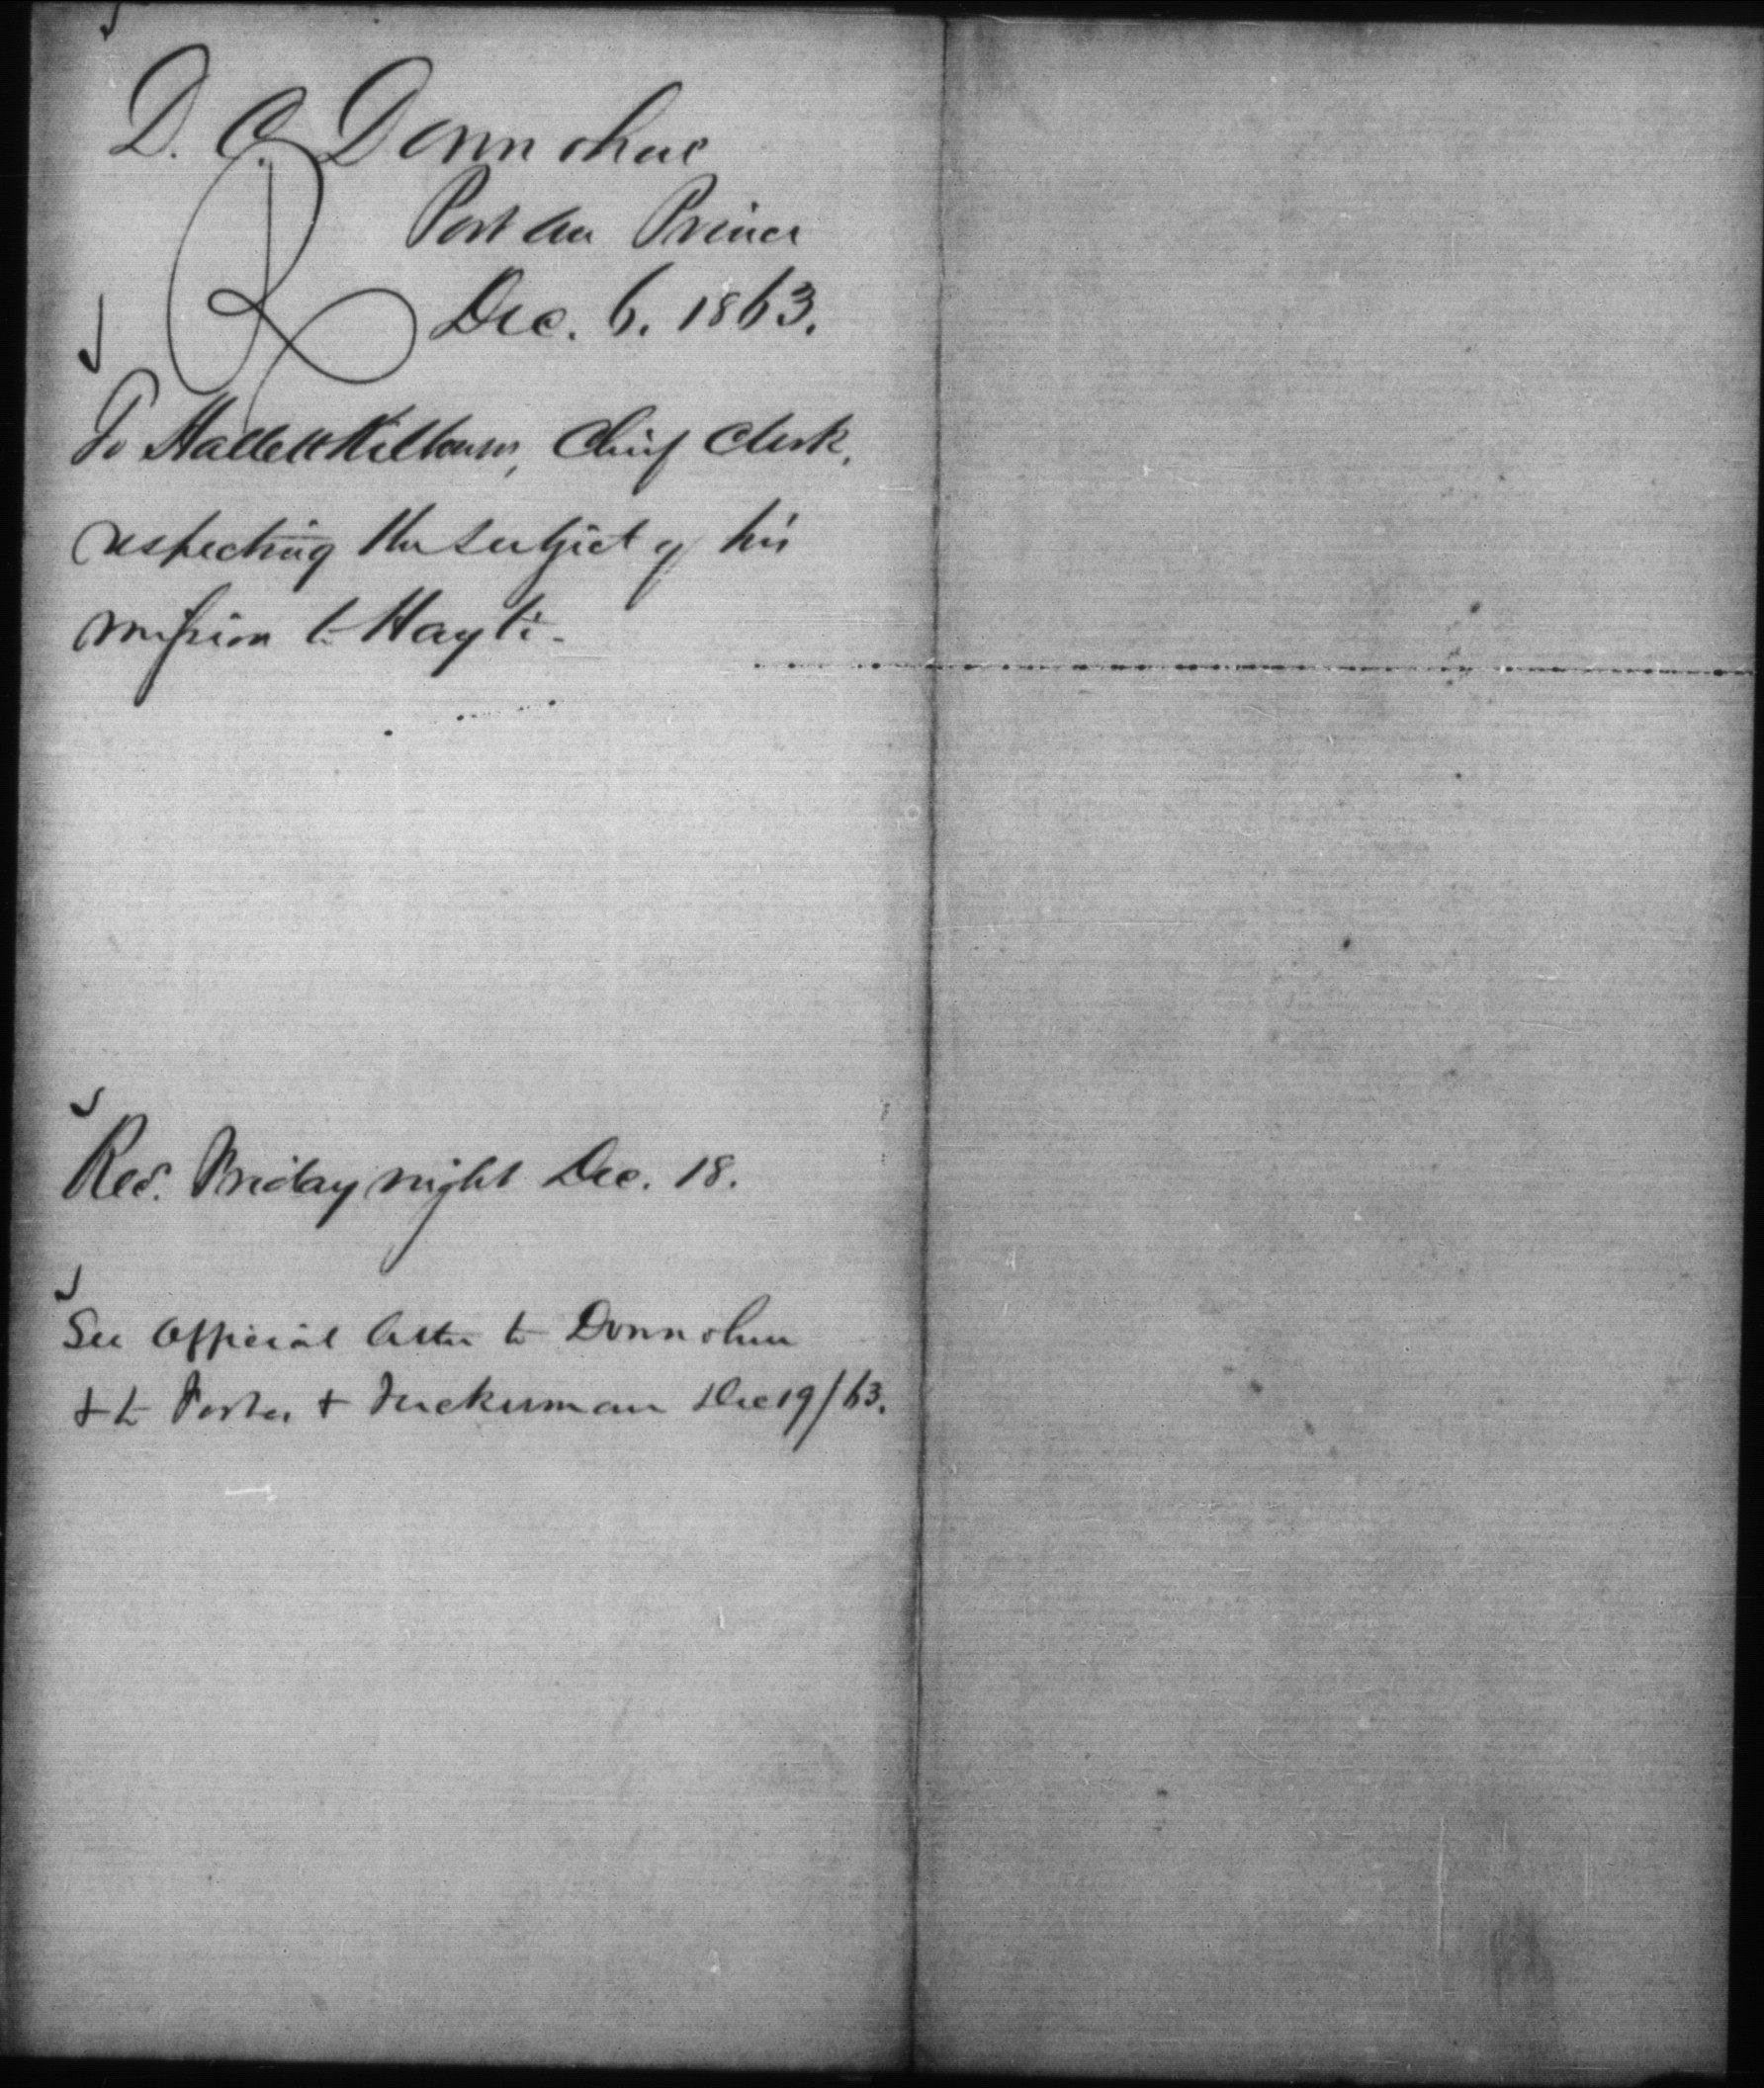 D. C. Donnohue
Port au Prince
Dec. 6. 1863.
To Hallett Kilbourn, Chief Clerk,
respecting the subject of his
mission to Hayti.
Recd. Friday night Dec. 18.
See Official letter to Donnohue
& to Forbes & Tuckerman Dec 19/63.